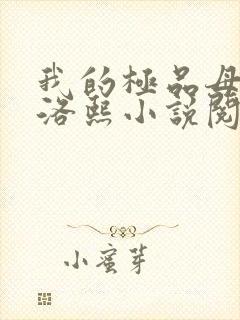 我的極品母
洛熙小說閱
小蜜芽